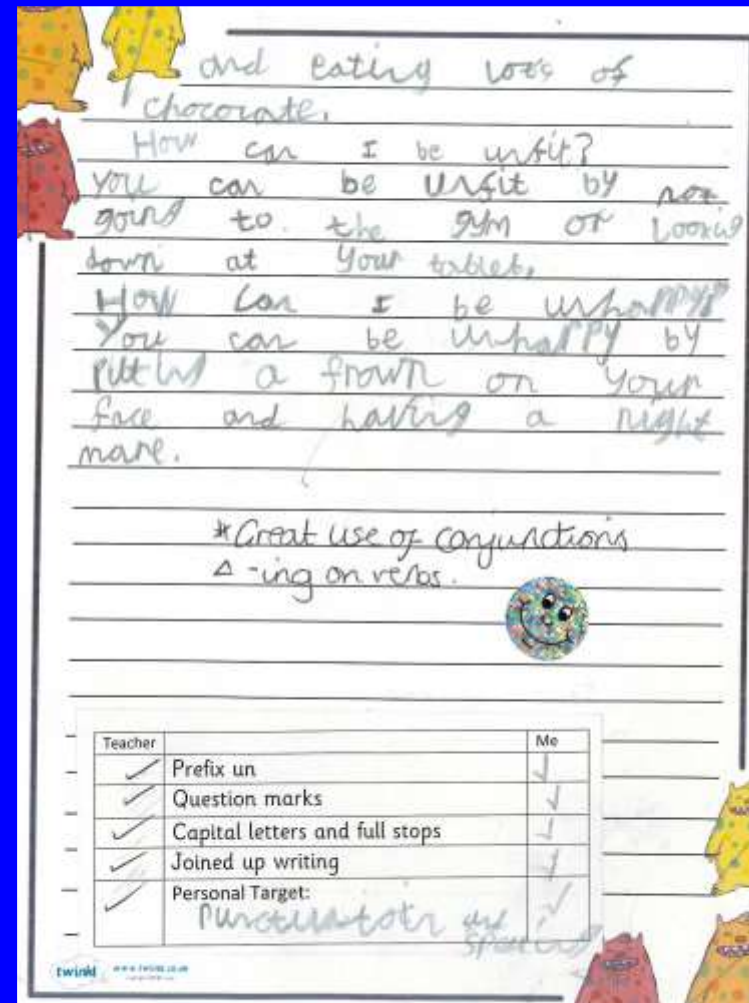 and eating lots of
chocorate.
How can I be unfit?
You can be unfit by not
going to the gym or looking
down at your tablet.
How can I be unhappy?
You can be unhappy by
putting a frown on your
face and having a night
mare.
*Great use of conjunctions
△ -ing on verbs.
Teacher Me
Prefix un
Question marks
Capital letters and full stops
Joined up writing
Personal Target:
Punctuatotn
twinkl www.twinkl.co.uk